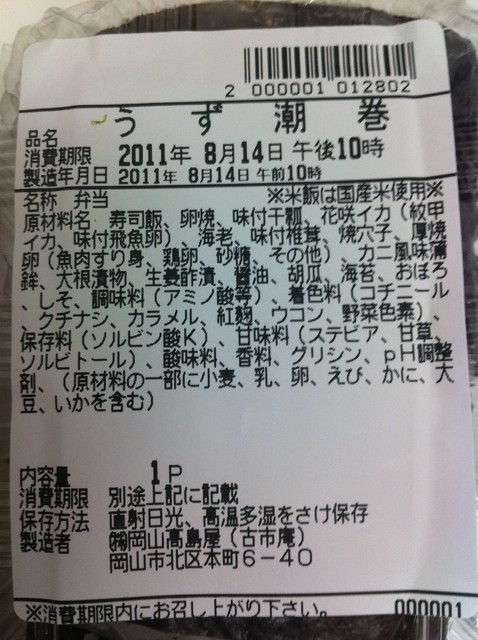 2 000001 012802
品名 うず潮巻
消費期限 2011年 8月14日 午後10時
製造年月日 2011年 8月14日 午前10時
名称 弁当 ※米飯は国産米使用※
原材料名 寿司飯、卵焼、味付干瓢、花咲イカ（紋甲
イカ、味付飛魚卵）、海老、味付椎茸、焼穴子、厚焼
卵（魚肉すり身、鶏卵、砂糖、その他）、カニ風味蒲
鉾、大根漬物、生姜酢漬、醤油、胡瓜、海苔、おぼろ
、しそ、調味料（アミノ酸等）、着色料（コチニール
、クチナシ、カラメル、紅麹、ウコン、野菜色素）、
保存料（ソルビン酸K）、甘味料（ステビア、甘草、
ソルビトール）、酸味料、香料、グリシン、pH調整
剤、（原材料の一部に小麦、乳、卵、えび、かに、大
豆、いかを含む）
内容量 1P
消費期限 別途上記に記載
保存方法 直射日光、高温多湿をさけ保存
製造者 ㈱岡山高島屋（古市庵）
岡山市北区本町6－40
※消費期限内にお召し上がり下さい。 000001